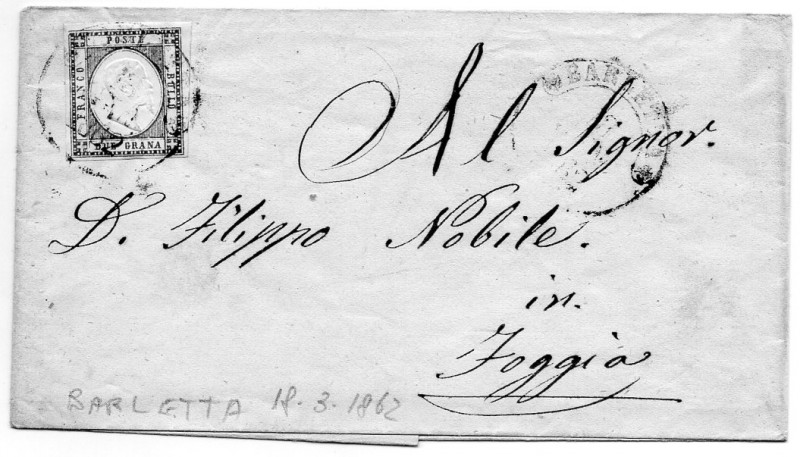 POSTE
FRANCO
BOLLO
DUE GRANA
BARLETTA
Al Signor.
D. Filippo Nobile.
in.
Foggia
BARLETTA 18.3.1862